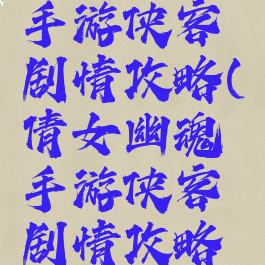 手游侠客
剧情攻略(
倩女幽魂
手游侠客
剧情攻略